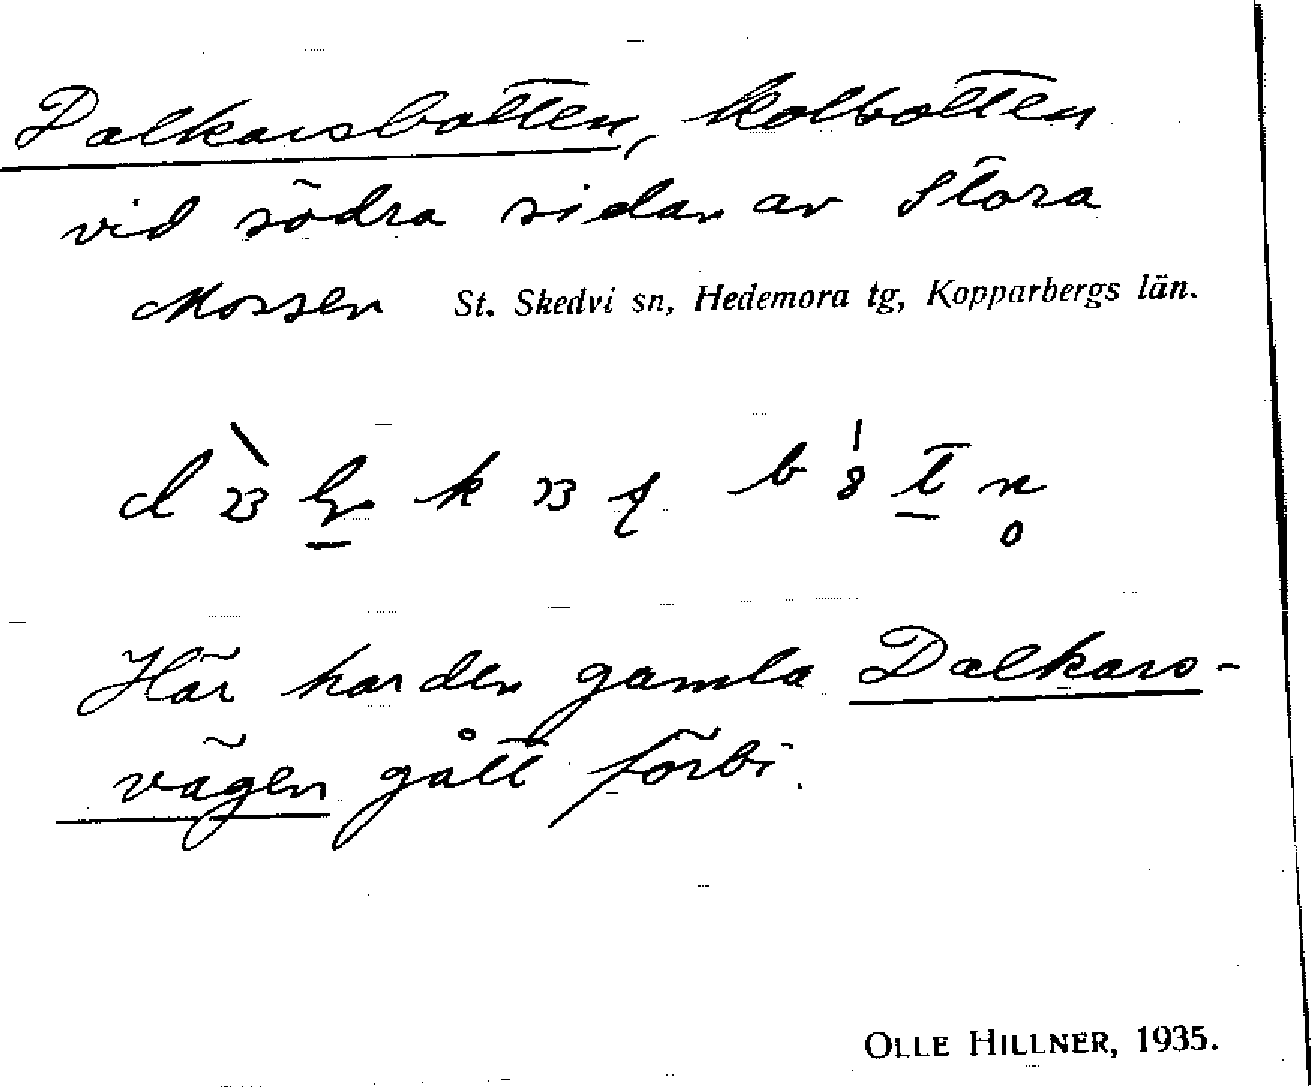 Dalkarsbotten, kolbotten
vid södra sidan av Stora
Mossen St. Skedvi sn, Hedemora tg, Kopparbergs län.
Här har den gamla Dalkars-
vägen gått förbi.
OLLE HILLNER, 1935.